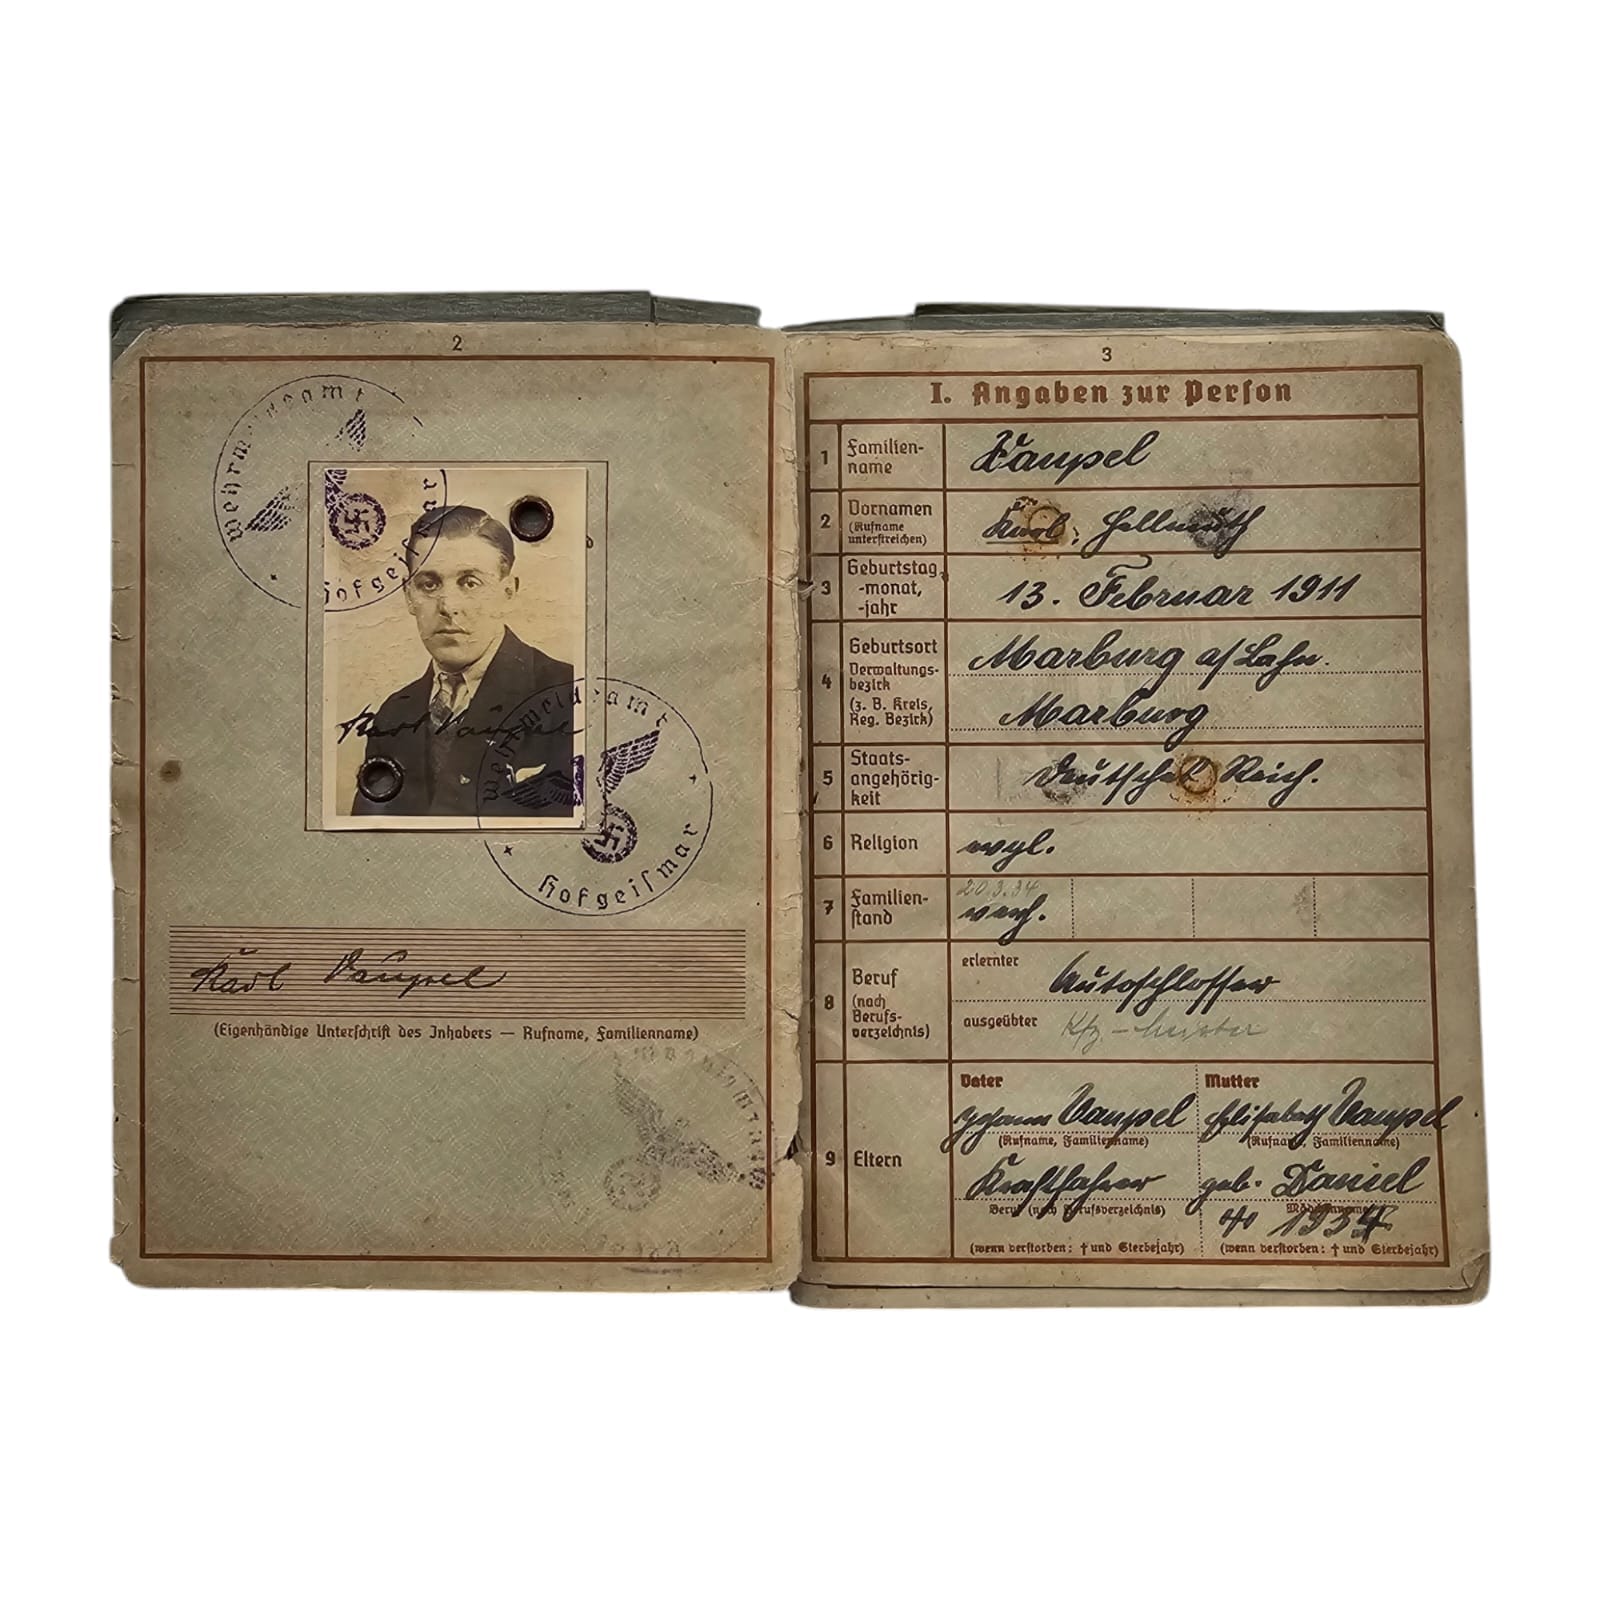 2
Wehrmeldeamt
Hofgeismar
Karl Vaupel
Wehrmeldeamt
Hofgeiſmar
Karl Vaupel
(Eigenhändige Unterſchrift des Inhabers — Rufname, Familienname)
3
I. Angaben zur Perſon
1 Familien-
name
Vaupel
2 Vornamen
(Rufname
unterſtreichen)
Karl, Hellmuth
3 Geburtstag,
-monat,
-jahr
13. Februar 1911
4 Geburtsort
Marburg a/Lahn.
Verwaltungs-
bezirk
(z. B. Kreis,
Reg. Bezirk)
Marburg
5 Staats-
angehörig-
keit
Deutſches Reich.
6 Religion
evgl.
7 Familien-
ſtand
20.3.34
verh.
8 Beruf
(nach
Berufs-
verzeichnis)
erlernter
Autoſchloſſer
ausgeübter
Kfz.-Meister
9 Eltern
Vater
Vaupel
(Rufname, Familienname)
Kraftfahrer
Beruf (nach Berufsverzeichnis)
(wenn verſtorben: † und Sterbejahr)
Mutter
Eliſabeth Vaupel
(Rufname, Familienname)
geb. Daniel
Mädchenname
1934
(wenn verſtorben: † und Sterbejahr)